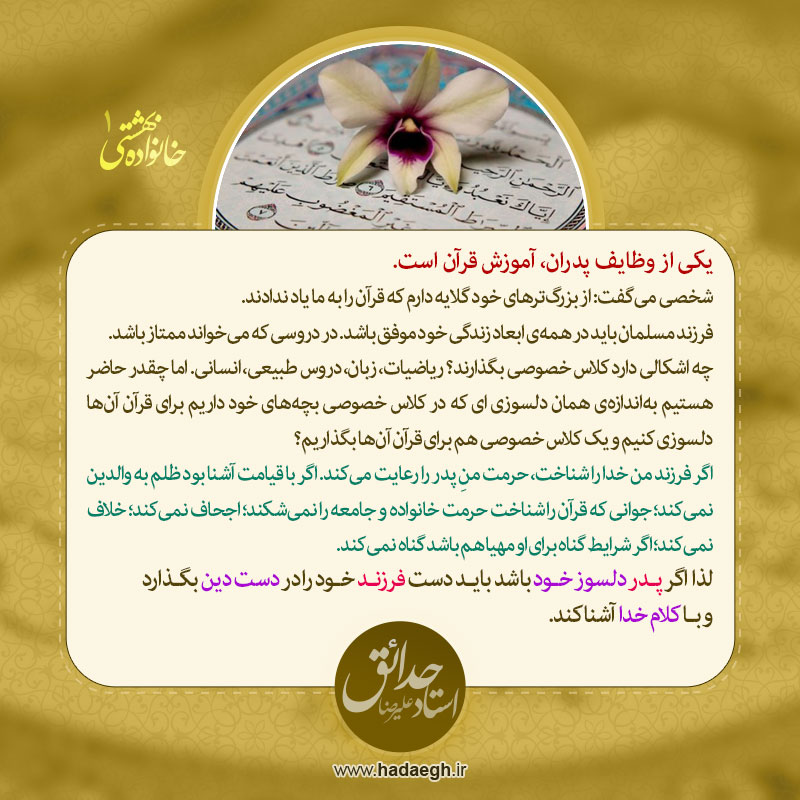 خانواده‌ی بهشتی ۱
الرَّحْمَٰنِ الرَّحِيمِ
إِيَّاكَ نَعْبُدُ
صِرَاطَ الَّذِينَ أَنْعَمْتَ
الْمُسْتَقِيمَ ٦
الْمَغْضُوبِ عَلَيْهِمْ
٧
یکی از وظایف پدران، آموزش قرآن است.
شخصی می‌گفت: از بزرگ‌ترهای خود گلایه دارم که قرآن را به ما یاد ندادند.
فرزند مسلمان باید در همه‌ی ابعاد زندگی خود موفق باشد. در دروسی که می‌خواند ممتاز باشد.
چه اشکالی دارد کلاس خصوصی بگذارند؟ ریاضیات، زبان، دروس طبیعی، انسانی. اما چقدر حاضر
هستیم به‌اندازه‌ی همان دلسوزی ای که در کلاس خصوصی بچه‌های خود داریم برای قرآن آن‌ها
دلسوزی کنیم و یک کلاس خصوصی هم برای قرآن آن‌ها بگذاریم؟
اگر فرزند من خدا را شناخت، حرمت منِ پدر را رعایت می‌کند. اگر با قیامت آشنا بود ظلم به والدین
نمی‌کند؛ جوانی که قرآن را شناخت حرمت خانواده و جامعه را نمی‌شکند؛ اجحاف نمی‌کند؛ خلاف
نمی‌کند؛ اگر شرایط گناه برای او مهیا هم باشد گناه نمی‌کند.
لذا اگر پدر دلسوز خود باشد باید دست فرزند خود را در دست دین بگذارد
و با کلام خدا آشنا کند.
استاد علیرضا حدائق
www.hadaegh.ir